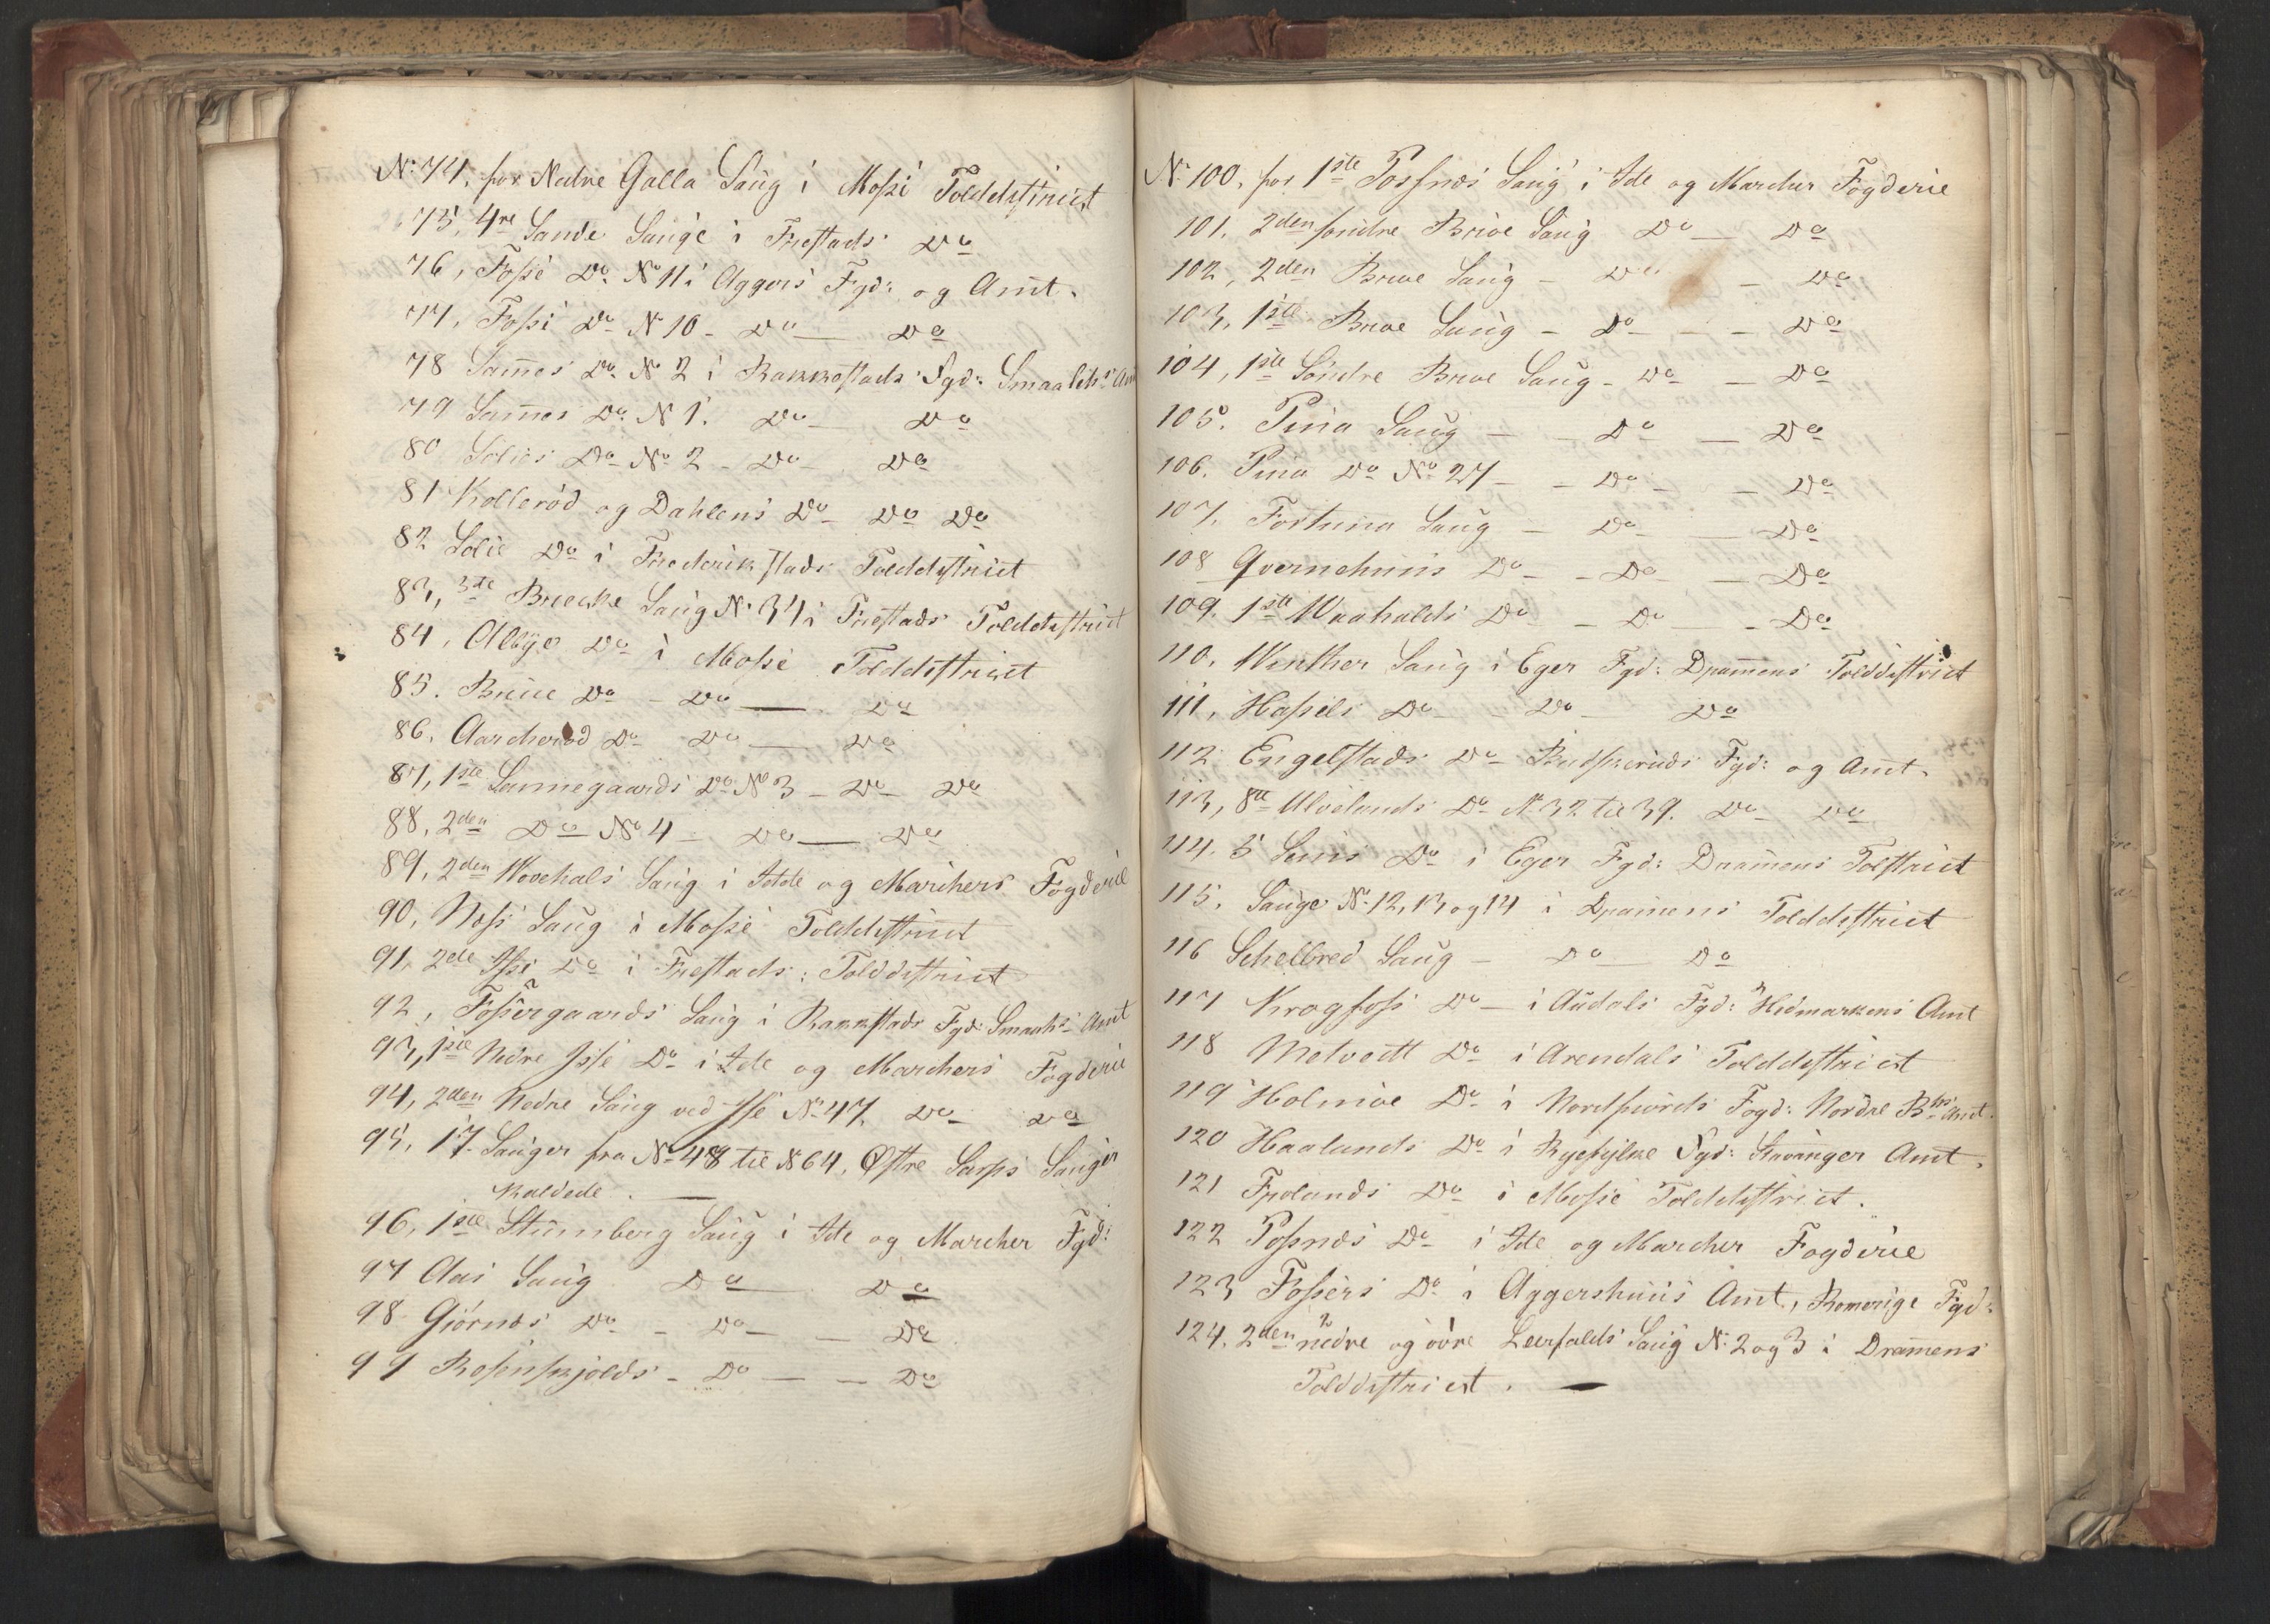 No 74, for Nedre Galla Saug i Mosse Tolddistrict
75, 4re Sande Sauge i Friestads Do
76, Fosse Do No 11 i Aggers Fgd: og Amt.
77, Fosse Do No 10 - Do — Do
78 Sannes Do No 2 i Rakkestads Fgd: Smaalehs Amt
79 Sannes Do No 1. Do — Do
80 Solies Do No 2 - Do - Do
81 Kollerød og Dahlens Do - Do Do
82 Solie Do i Frederikstads Tolddistrict
83, 3te Breche Saug No 34 i Friestads Tolddistrict
84, Albye Do i Mosse Tolddistrict
85. Bruue Do - Do — Do
86, Aarcherød Do Do — Do
87, 1ste Sannegaards Do No 3 - Do - Do
88, 2den Do No 4 - Do — Do
89, 2den Wevehals Saug i Idde og Marchers Fogderie
90, Næss Saug i Mosse Tolddistrict
91, 2de Isse Do i Friestads: Tolddistrict
92, Fossergaards Saug i Rakkstads Fgd: Smaahs Amt
93, 1ste Nedre Isse Do i Ide og Marchers Fogderie
94, 2den Nedre Saug ved Isse No 47. Do - Do
95, 17. Sauger fra No 48 til No 64, Østre Sarps Sauger
kaldede. —
96, 1ste Stumberg Saug i Ide og Marcher Fgd:
97 Aas Saug Do — Do
98 Giørnæs Do - Do - — Do
99 Rosenskjolds - Do — — Do
No 100, for 1ste Possnæs Saug i Ide og Marcher Fogderie
101, 2den søndre Brue Saug Do — Do
102, 2den Brue Saug - Do - Do
103, 1ste Brue Saug - Do - - Do
104, 1ste Søndre Brue Saug - Do — Do
105. Pina Saug — - Do — Do
106. Pina Do No 27 - - Do - - Do
107. Fortuna Saug - Do — Do
108 Qvernehuus Do - - Do — Do
109. 1ste Waahalds Do - Do - Do
110, Winther Saug i Eger Fgd: Dramens Tolddistrict
111, Hassels Do - Do - Do
112 Engelstads Do Budskeruds Fgd: og Amt.
113, 8te Ulvelands Do No 32 til 39. Do - Do
114. 3 Sems Do i Eger Fgd: Dramens Tolstrict
115, Sauge No 12, 13 og 14 i Dramens Tolddistrict
116 Schelbred Saug - Do — Do
117 Krogfoss Do - i Audals Fgd: Hedmarkens Amt
118 Metveitt Do i Arendals Tolddistrict
119 Holmøe Do i Nordfiords Fogd: Nordre Bhs Amt.
120 Haalands Do i Ryefylke Fgd: Stavanger Amt.
121 Frolands Do i Mosse Tolddistrict.
122 Possnæs Do i Ide og Marcher Fogderie
123 Fossers Do i Aggershuus Amt, Romerige Fgd:
124. 2den nedre og øvre Leerfalds Saug No 2 og 3 i Dramens
Tolddistrict. —